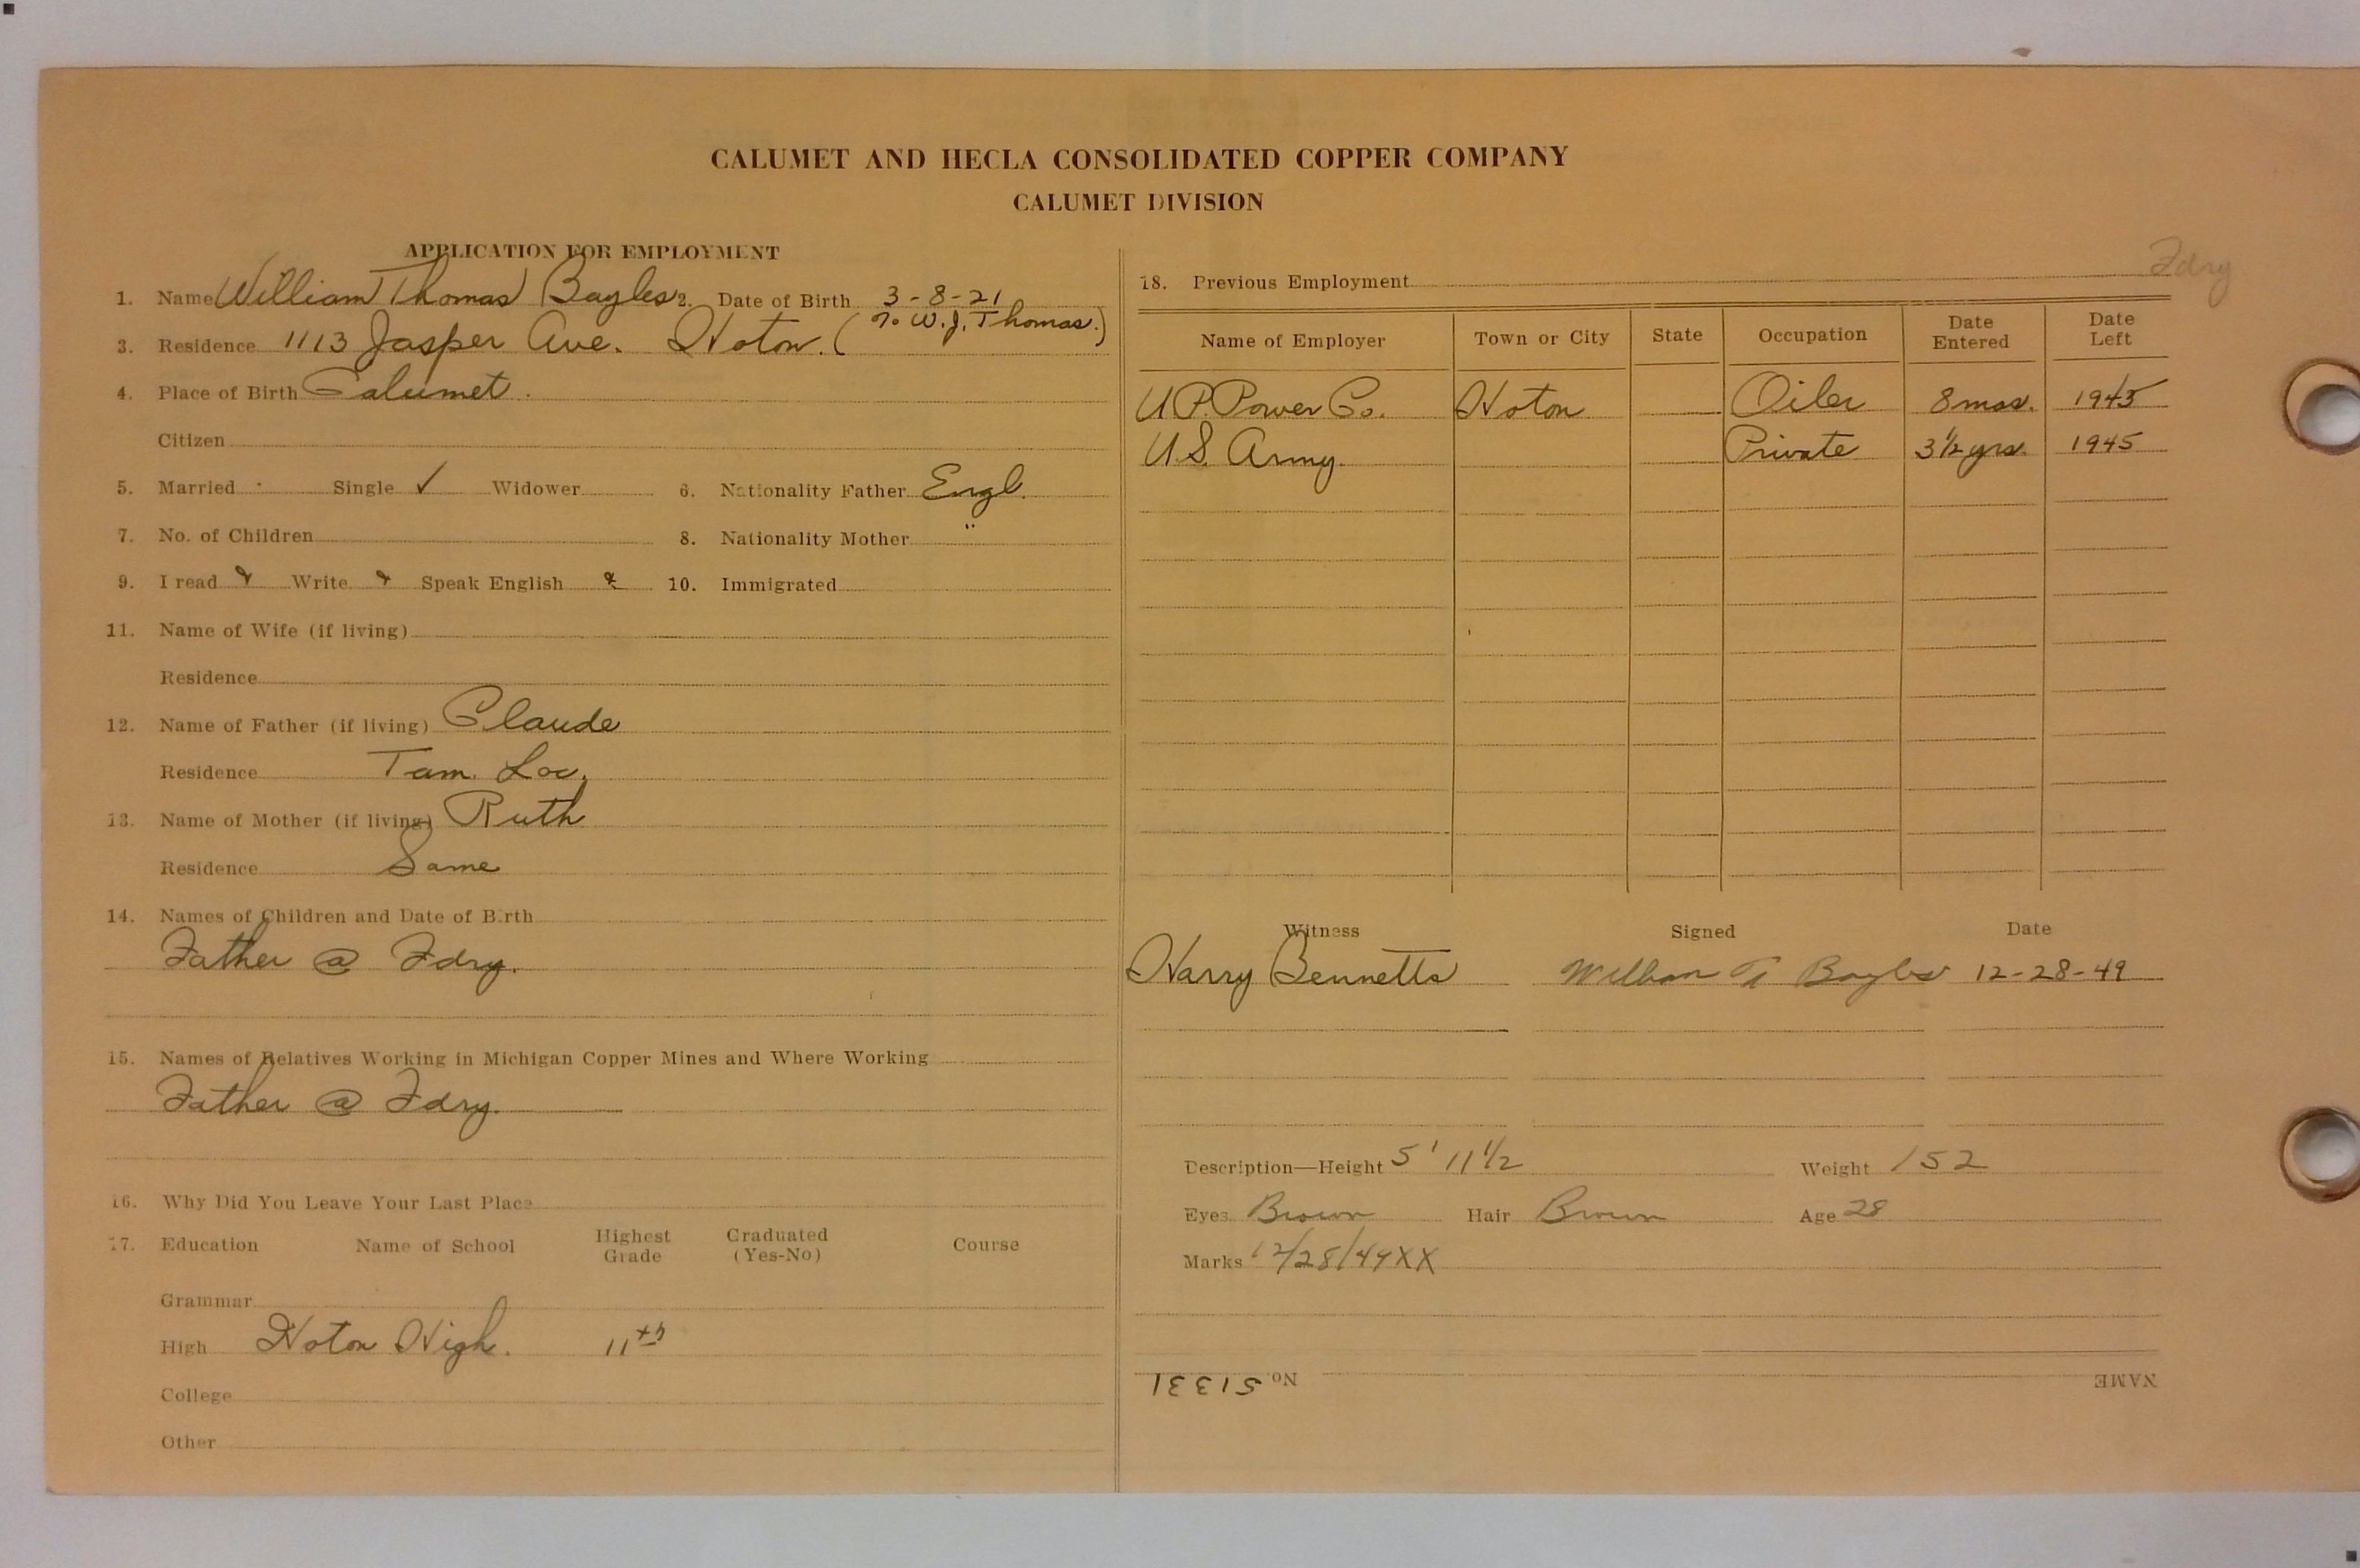 CALUMET AND HECLA CONSOLIDATED COPPER COMPANY
CALUMET DIVISION
APPLICATION FOR EMPLOYMENT
1. Name William Thomas Bayles 2. Date of Birth 3-8-21
3. Residence 1113 Jasper Ave. Hoton. (% W. J. Thomas.)
4. Place of Birth Calumet.
Citizen
5. Married Single ✓ Widower 6. Nationality Father Engl.
7. No. of Children 8. Nationality Mother "
9. I read Write Speak English 10. Immigrated
11. Name of Wife (if living)
Residence
12. Name of Father (if living) Claude
Residence Tam. Loc.
13. Name of Mother (if living) Ruth
Residence Same
14. Names of Children and Date of Birth
Father @ Fdry.
15. Names of Relatives Working in Michigan Copper Mines and Where Working
Father @ Fdry.
16. Why Did You Leave Your Last Place
17. Education Name of School Highest Grade Graduated (Yes-No) Course
Grammar
High Hoton High. 11th
College
Other
Fdry
18. Previous Employment
Name of Employer Town or City State Occupation Date Entered Date Left
U.P. Power Co. Hoton Oiler 8 mos. 1945
U.S. Army. Private 3½ yrs. 1945
Witness Signed Date
Harry Bennetts William T Bayles 12-28-49
Description—Height 5' 11½ Weight 152
Eyes Brown Hair Brown Age 28
Marks 12/28/49XX
NAME No. 51331